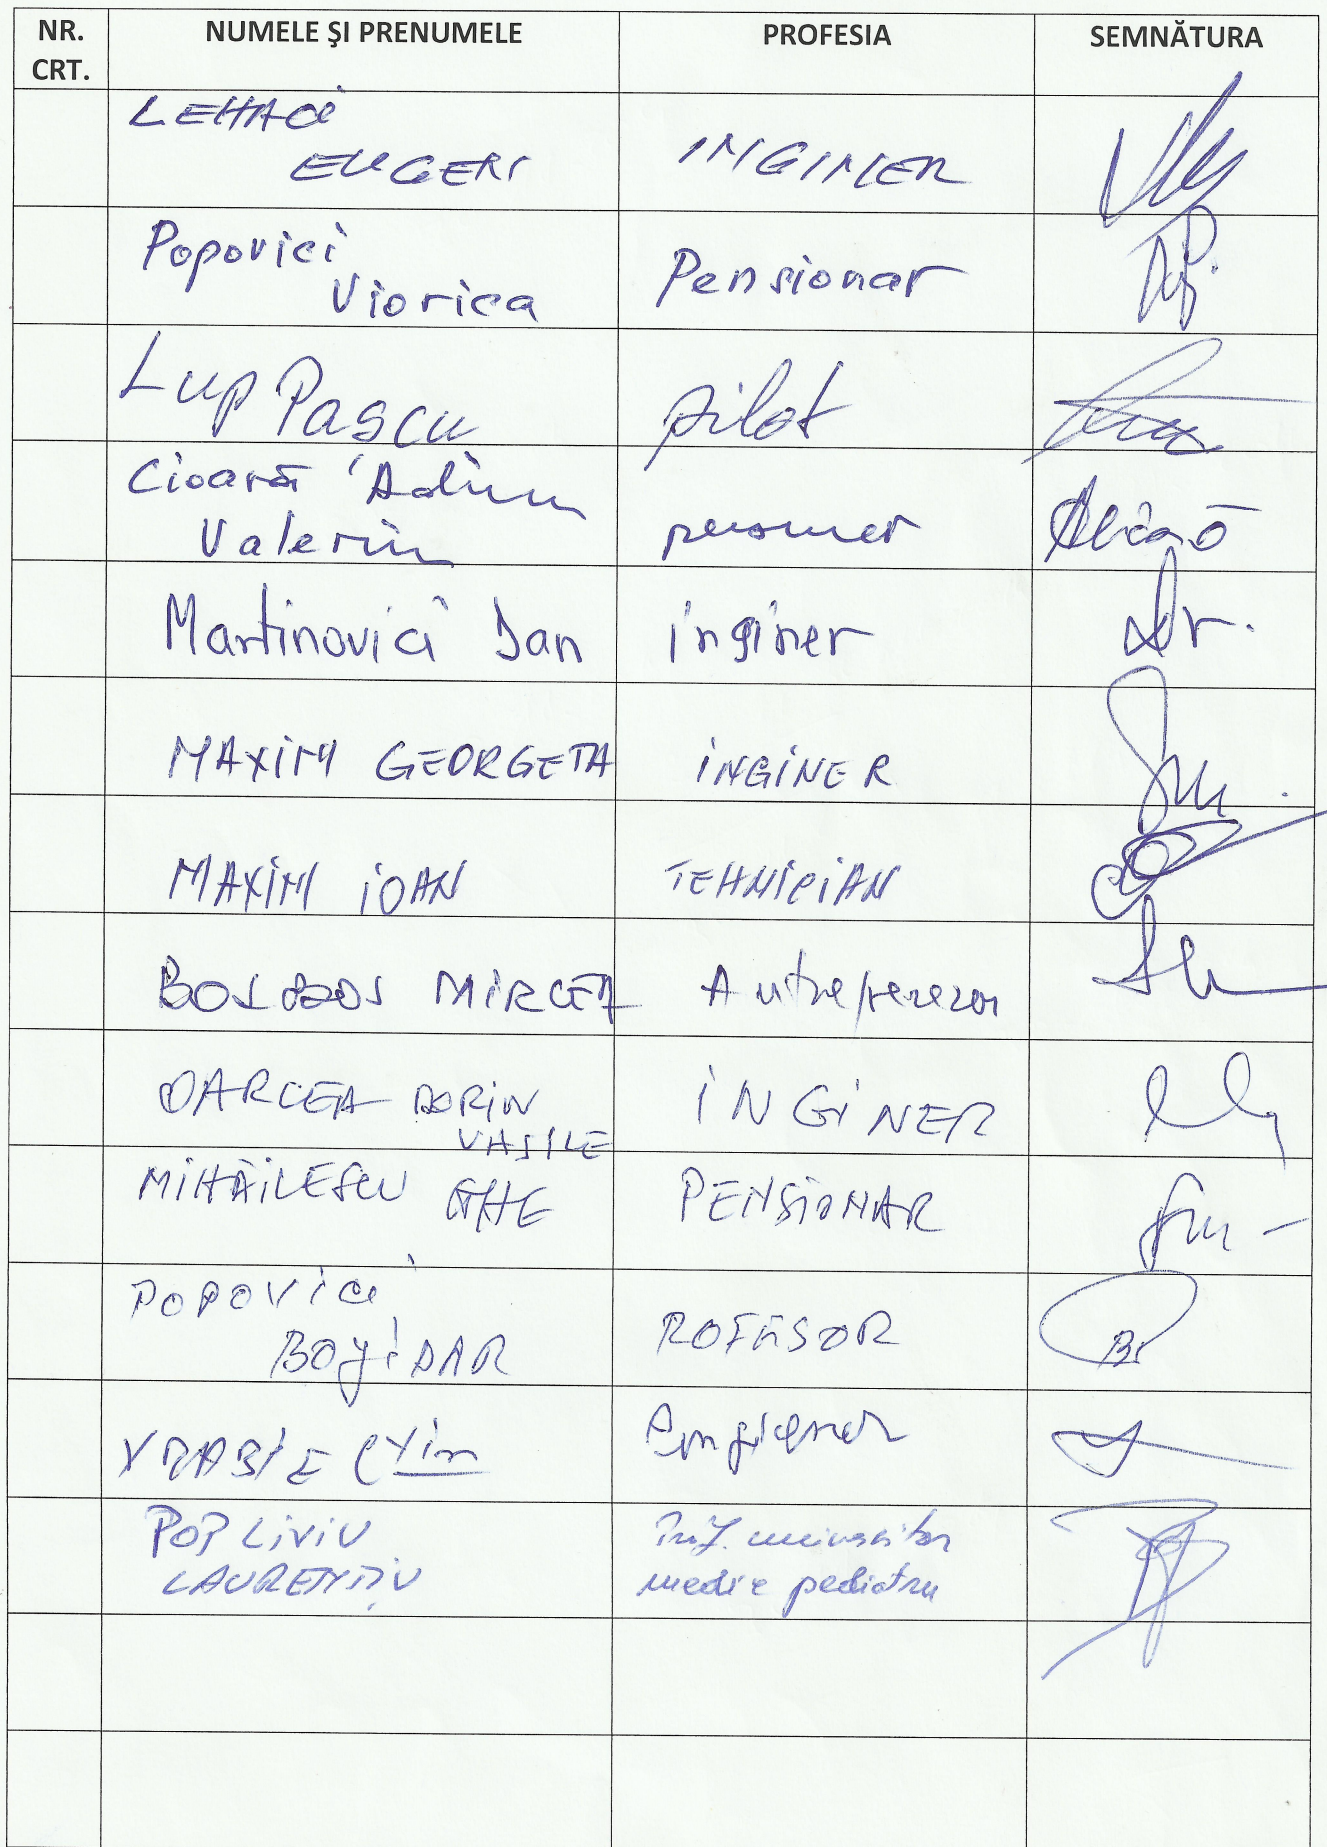 NR. CRT. NUMELE ŞI PRENUMELE PROFESIA SEMNĂTURA
LEHACI
EUGEN INGINER
Popovici
Viorica Pensionar
Lup Pascu pilot
Cioară Adina
Valeria
Martinovici Dan inginer
MAXIM GEORGETA INGINER
MAXIM IOAN TEHNICIAN
MIRCEA Antreprezor
OARCEA DORIN
VASILE INGINER
MIHĂILESCU GHE PENSIONAR
POPOVICI
BOJIDAR ROFESOR
VRABIE
POP LIVIU Prof. universitar
LAURENȚIU medic pediatru